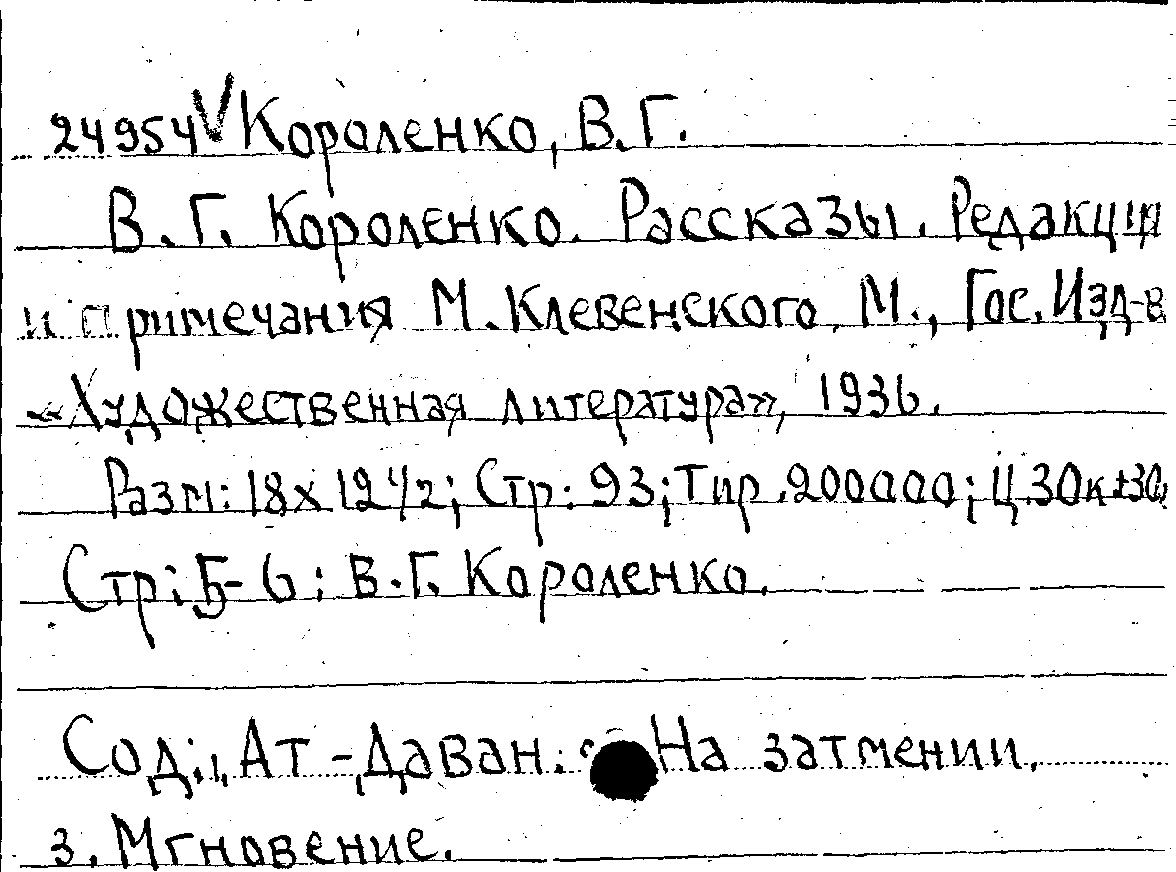 24954 V Короленко, В.Г.
В.Г. Короленко. Рассказы. Редакция
и примечания М. Клевенского. М., Гос. Изд-в
«Художественная литература», 1936.
Разм: 18х12 1/2; Стр: 93; Тир. 200000; Ц. 30к+30
Стр: 5-6: В.Г. Короленко.
Сод: 1. Ат-Даван. На затмении.
3. Мгновение.